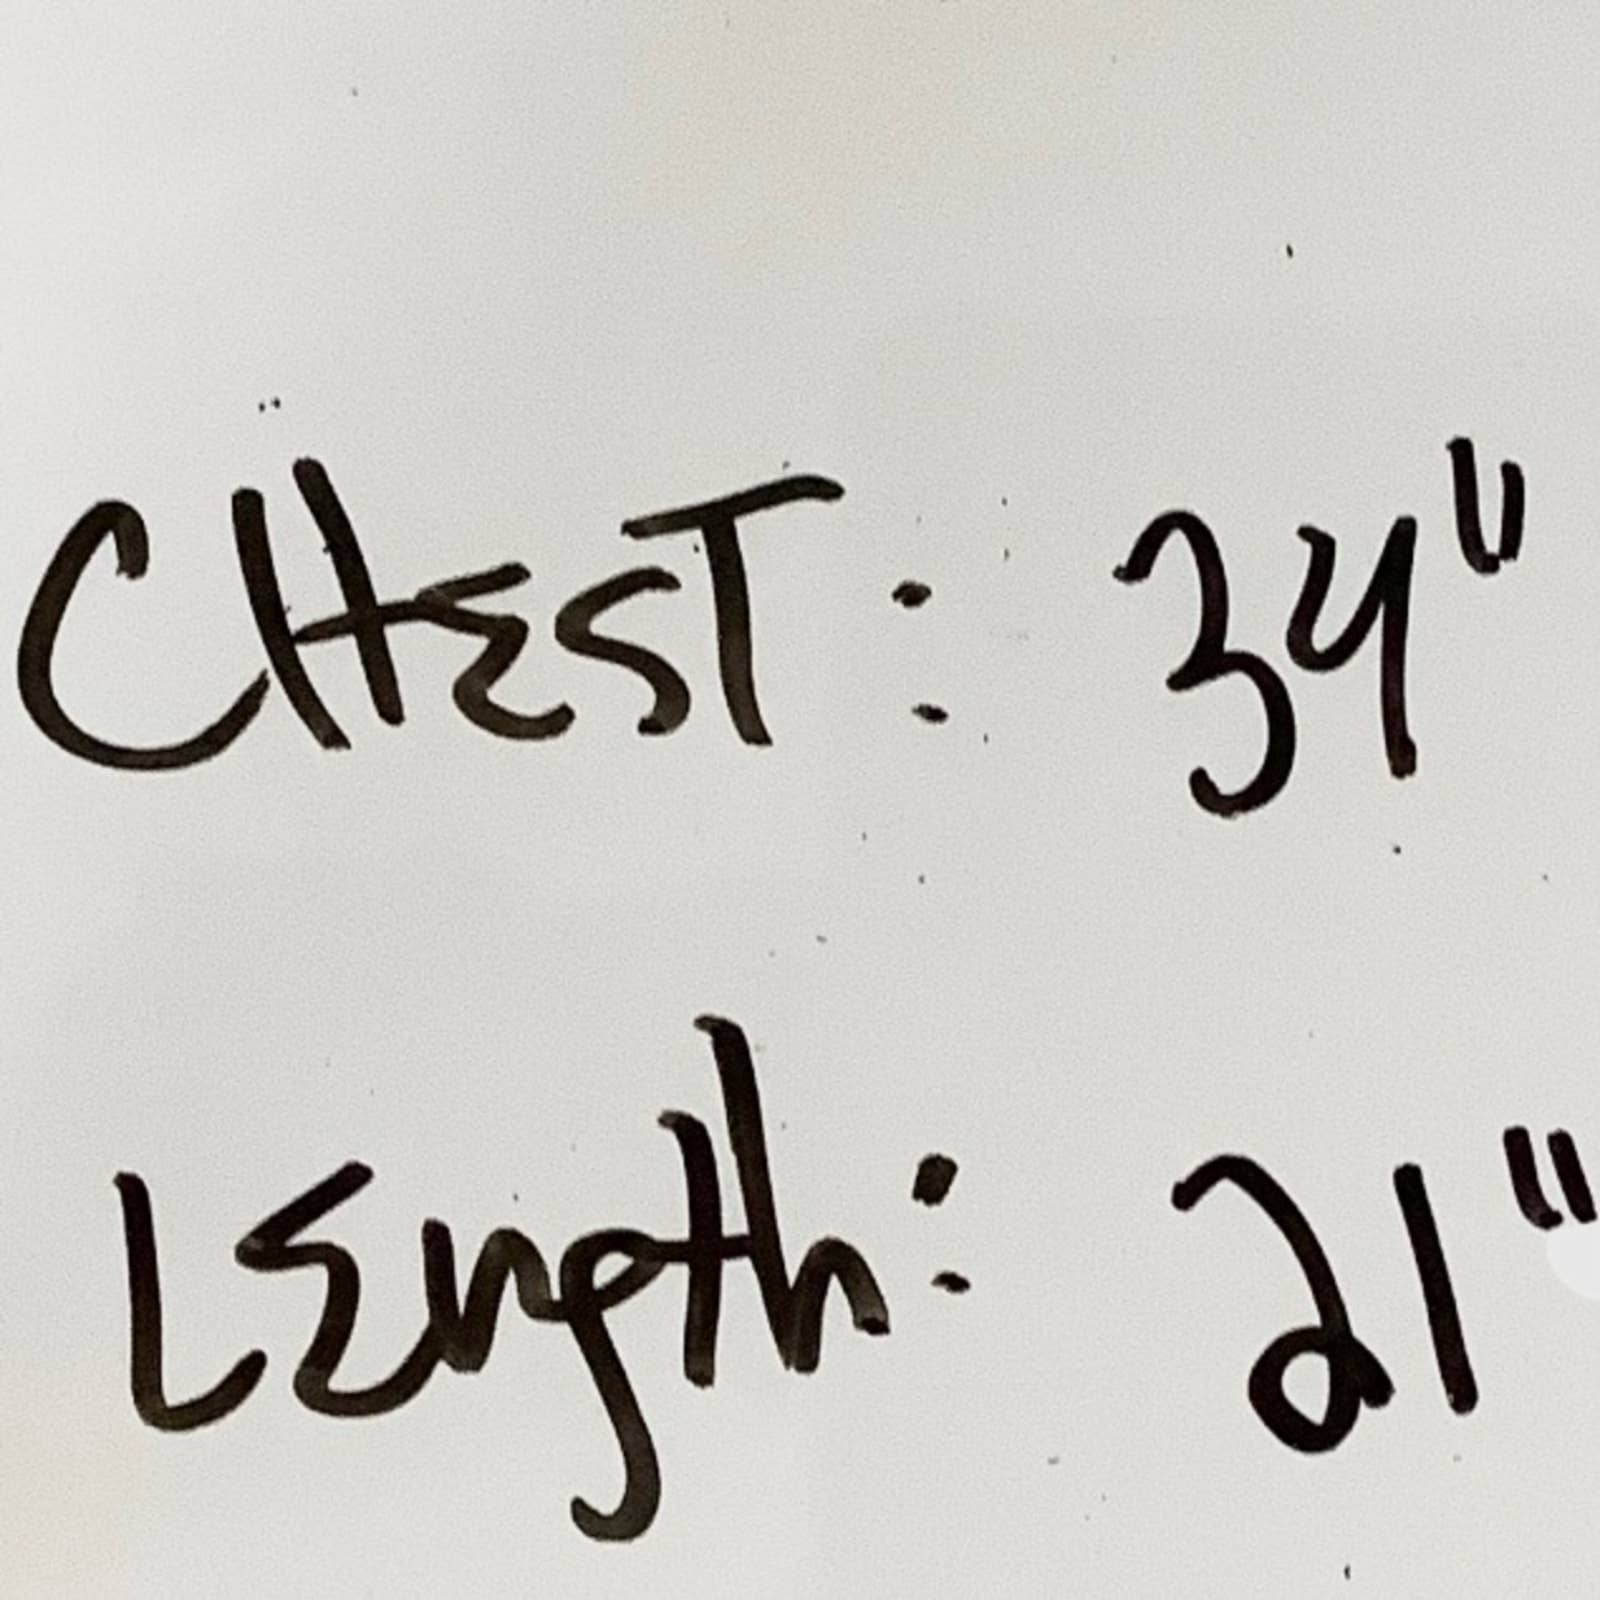 CHEST: 34"
LEngth: 21"